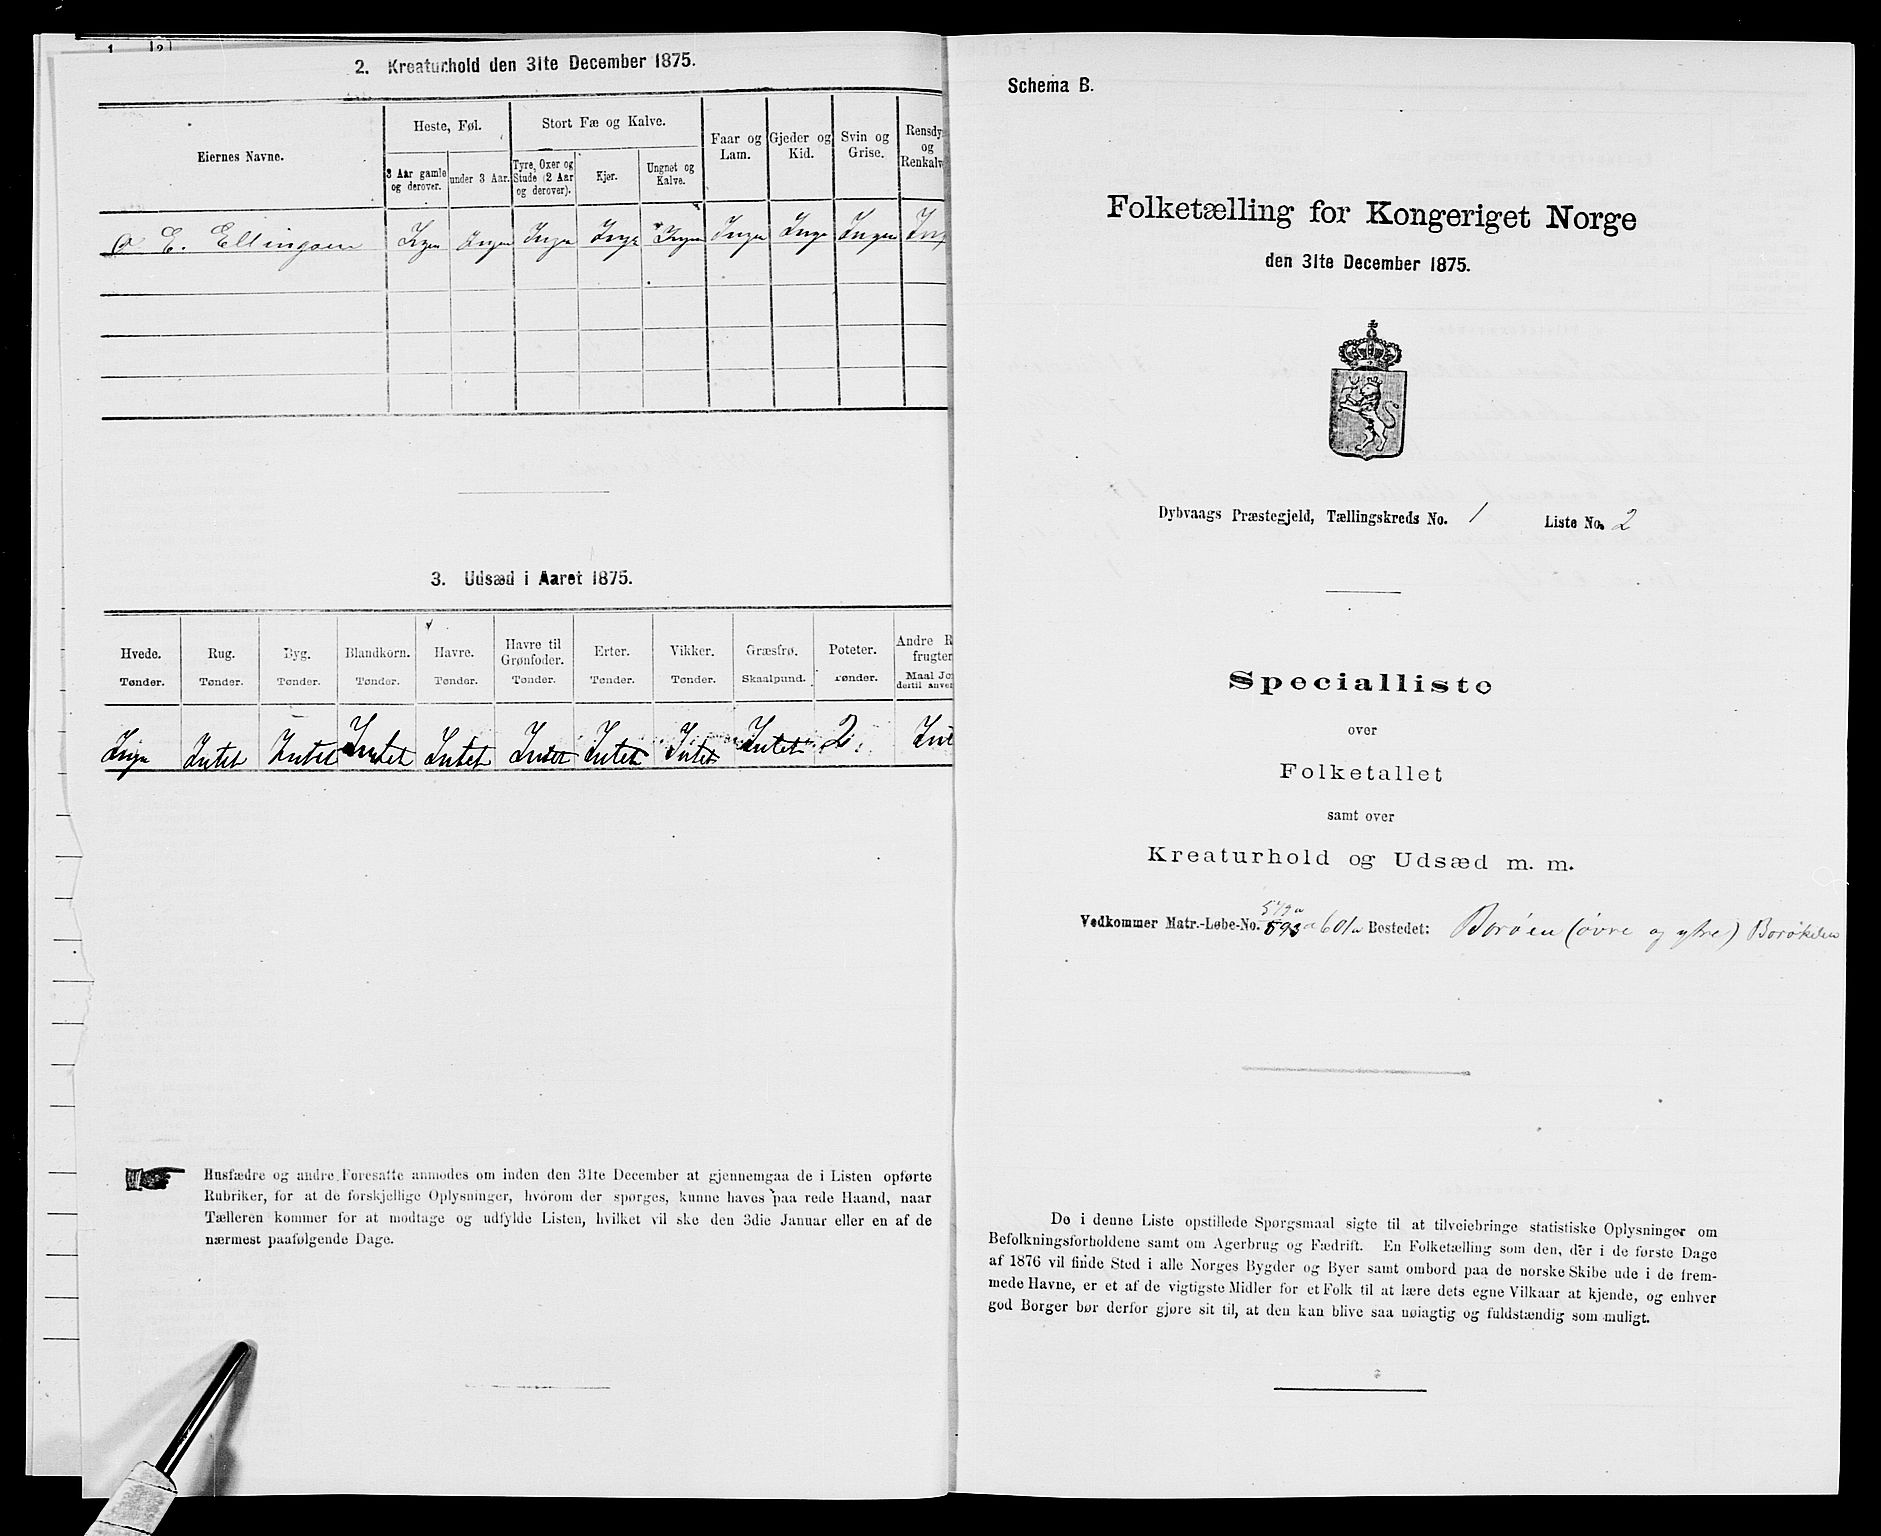 1 2
2. Kreaturhold den 31te December 1875.
Eiernes Navne.
Heste, Føl.
Stort Fæ og Kalve.
Faar og Lam.
Gjeder og Kid.
Svin og Grise.
Rensdy
og
Renkalv
3 Aar gamle og derover.
under 3 Aar.
Tyre, Oxer og Stude (2 Aar og derover).
Kjør.
Ungnet og Kalve.
E. Ellingsen Ingen Ingen Ingen Inge Ingen Ingen Inge Ingen Ing
3. Udsæd i Aaret 1875.
Hvede. Rug. Byg. Blandkorn. Havre. Havre til Grønfoder. Erter. Vikker. Græsfrø. Poteter. Andre R
frugter
Tønder. Tønder. Tønder. Tønder. Tønder. Tønder. Tønder. Tønder. Skaalpund. Tønder. Maal Jo
dertil anve
Inge Intet Intet Intet Intet Intet Intet Intet Intet 2. Int
Husfædre og andre Foresatte anmodes om inden den 31te December at gjennemgaa de i Listen opførte
Rubriker, for at de forskjellige Oplysninger, hvorom der spørges, kunne haves paa rede Haand, naar
Tælleren kommer for at modtage og udfylde Listen, hvilket vil ske den 3die Januar eller en af de
nærmest paafølgende Dage.
Schema B.
Folketælling for Kongeriget Norge
den 31te December 1875.
Dybvaags Præstegjeld, Tællingskreds No. 1 Liste No. 2
Specialliste
over
Folketallet
samt over
Kreaturhold og Udsæd m. m.
549a
Vedkommer Matr.-Løbe-No. 593a 601a Bostedet: Borøen (øvre og ytre) Borøkilen
De i denne Liste opstillede Spørgsmaal sigte til at tilveiebringe statistiske Oplysninger om
Befolkningsforholdene samt om Agerbrug og Fædrift. En Folketælling som den, der i de første Dage
af 1876 vil finde Sted i alle Norges Bygder og Byer samt ombord paa de norske Skibe ude i de frem-
mede Havne, er et af de vigtigste Midler for et Folk til at lære dets egne Vilkaar at kjende, og enhver
god Borger bør derfor gjøre sit til, at den kan blive saa nøiagtig og fuldstændig som muligt.